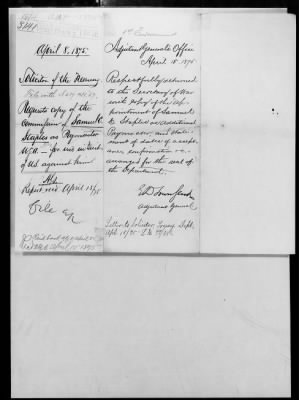 3141
April 8, 1875
Solicitor of the Treasury
Requests copy of the
commission of Samuel C.
Staples as Paymaster
USA - for use in suit
of US against him
Report rec'd April 13/75
File
1st Indorsement
Adjutant General's Office
April 15, 1875
Respectfully returned
to the Secretary of War
with copy of the ap-
pointment of Samuel
C. Staples as additional
Paymaster, and state-
ment of dates of accept-
ance, confirmation &c.
arranged for the seal of
the Department.
E D Townsend
Adjutant General
Letter to Solicitor Treasy Dept.